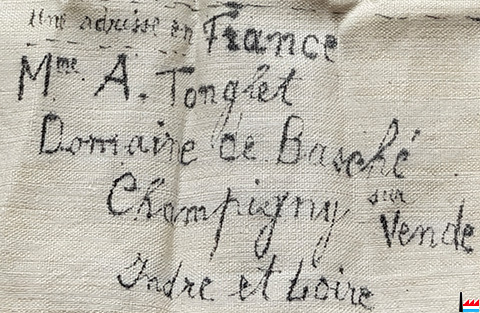 une adresse en France
Mme A. Tonglet
Domaine de Basché
Champigny sur Vende
Indre et Loire